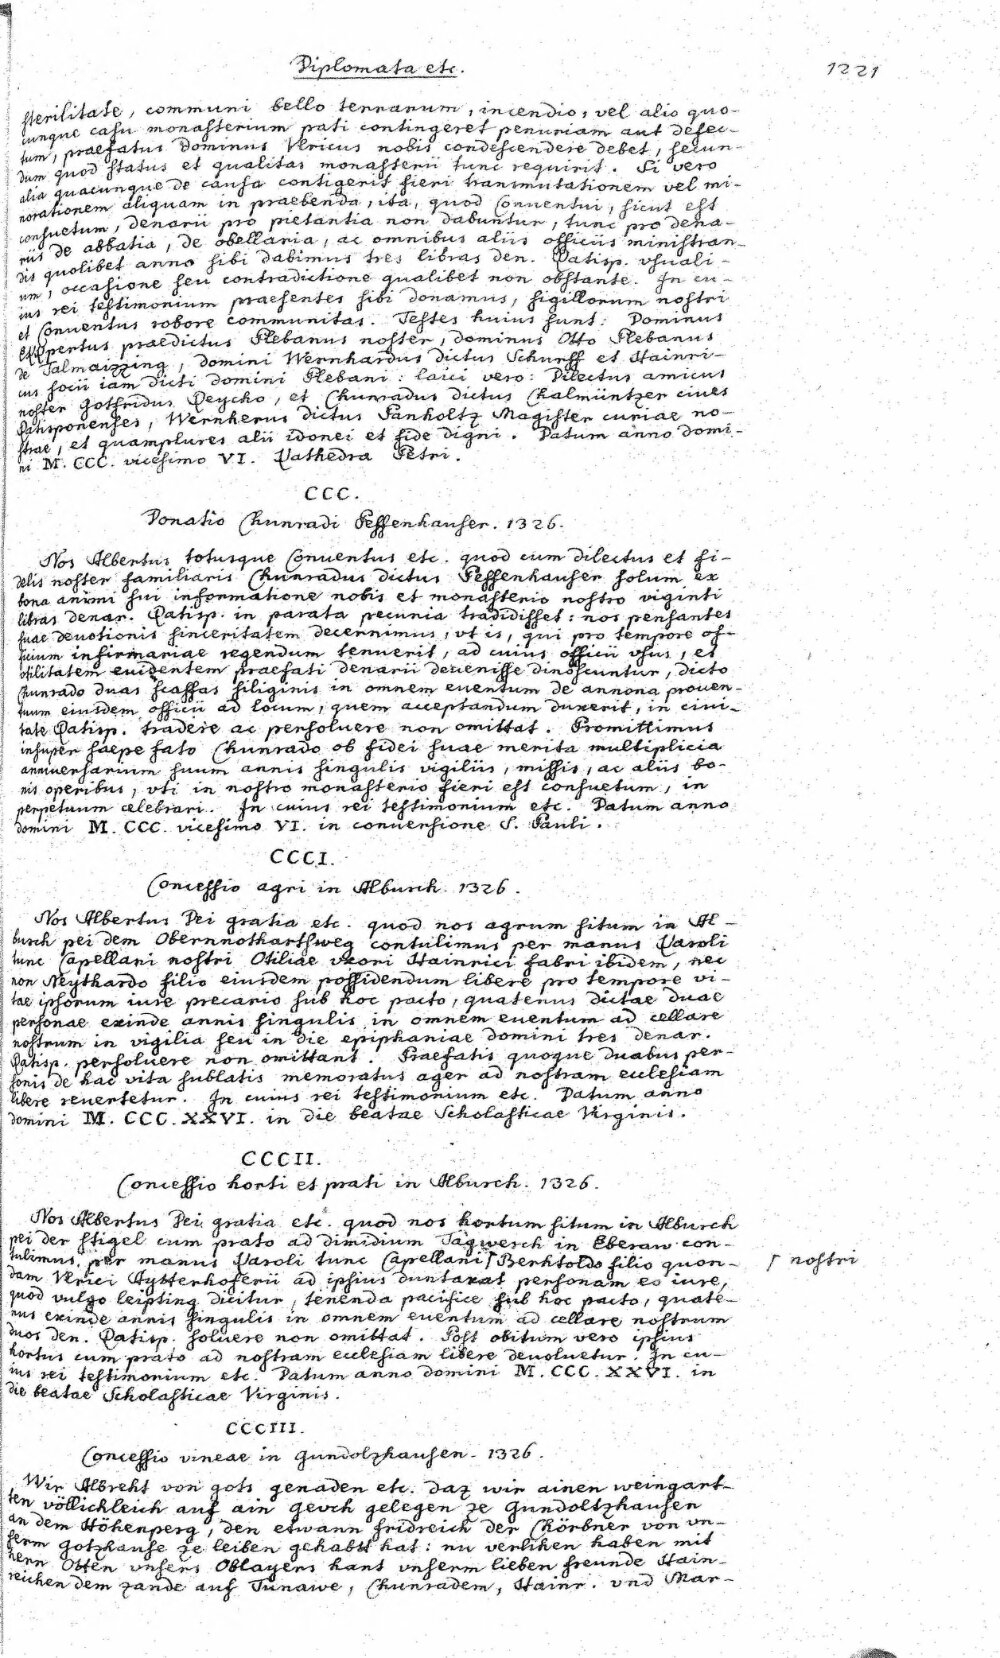 Diplomata etc.
1221
sterilitate, communi bello terrarum, incendio, vel alio quo-
cunque casu monasterium pati contingeret penuriam aut defec-
tum, praefatus dominus Vlricus nobis condescendere debet, secun-
dum quod status et qualitas monasterii tunc requirit. Si vero
alia quacunque de causa contigerit fieri transmutationem vel mi-
norationem aliquam in praebenda, ita, quod Conuentui, sicut est
consuetum, denarii pro pietantia non dabuntur, tunc pro dena-
riis de abbatia, de obellaria, ac omnibus aliis officiis ministran-
dis quolibet anno sibi dabimus tres libras den. Ratisp. vsuali-
um, occasione seu contradictione qualibet non obstante. In cu-
ius rei testimonium praesentes sibi donamus, sigillorum nostri
et Conuentus robore communitas. Testes huius sunt: Dominus
predictus Plebanus noster, dominus Otto Plebanus
de Talmaizzing, domini Wernhardus dictus Schurff et Hainri-
cus socii iam dicti domini Plebani: laici vero: Dilectus amicus
noster Gotfridus Reycho, et Chunradus dictus Chalmüntzer ciues
Ratisponenses, Wernherus dictus Panholtz Magister curiae no-
strae, et quamplures alii idonei et fide digni. Datum anno domi-
ni M. CCC. vicesimo VI. Cathedra Petri.
CCC.
Donatio Chunradi Pessenhauser. 1326.
Nos Albertus totusque Conuentus etc. quod cum dilectus et fi-
delis noster familiaris Chunradus dictus Pessenhauser solum ex
bona animi sui informatione nobis et monasterio nostro viginti
libras denar. Ratisp. in parata pecunia tradidisset: nos pensantes
suae deuotionis sinceritatem decernimus, vt is, qui pro tempore of-
ficium infirmariae regendum tenuerit, ad cuius officii vsus, et
vtilitatem euidentem praefati denarii deuenisse dinoscuntur, dicto
Chunrado duas scaffas siliginis in omnem euentum de annona prouen-
tuum eiusdem officii ad locum, quem acceptandum duxerit, in ciui-
tate Ratisp. tradere ac persoluere non omittat. Promittimus
insuper saepe fato Chunrado ob fidei suae merita multiplicia
anniuersarium suum annis singulis vigiliis, missis, ac aliis bo-
nis operibus, vti in nostro monasterio fieri est consuetum, in
perpetuum celebrari. In cuius rei testimonium etc. Datum anno
domini M. CCC. vicesimo VI. in conuersione S. Pauli.
CCCI.
Concessio agri in Alburch. 1326.
Nos Albertus Dei gratia etc. quod nos agrum situm in Al-
burch pei dem Obernnothartsweg contulimus per manus Karoli
tunc Capellani nostri Otiliae vxori Hainrici fabri ibidem, nec
non Neythardo filio eiusdem possidendum libere pro tempore vi-
tae ipsorum iure precario sub hoc pacto, quatenus dictae duae
personae exinde annis singulis in omnem euentum ad cellare
nostrum in vigilia seu in die epiphaniae domini tres denar.
Ratisp. persoluere non omittant. Praefatis quoque duabus per-
sonis de hac vita sublatis memoratus ager ad nostram ecclesiam
libere reuertetur. In cuius rei testimonium etc. Datum anno
domini M. CCC. XXVI. in die beatae Scholasticae Virginis.
CCCII.
Concessio horti et prati in Alburch. 1326.
Nos Albertus Dei gratia etc. quod nos hortum situm in Alburch
pei der stigel cum prato ad dimidium Tagwerch in Eberaw con-
tulimus per manus Karoli tunc Capellani ſ Berhtoldo filio quon-
ſ nostri
dam Vlrici Aytterhoferii ad ipsius duntaxat personam eo iure,
quod vulgo leipting dicitur, tenenda pacifice sub hoc pacto, quate-
nus exinde annis singulis in omnem euentum ad cellare nostrum
duos den. Ratisp. soluere non omittat. Post obitum vero ipsius
hortus cum prato ad nostram ecclesiam libere deuoluetur. In cu-
ius rei testimonium etc. Datum anno domini M. CCC. XXVI. in
die beatae Scholasticae Virginis.
CCCIII.
Concessio vineae in Gundolzhausen. 1326.
Wir Albreht von gots genaden etc. daz wir ainen weingart-
ten völlichleich auf ain gevch gelegen ze Gundoltzhausen
an dem Höhenperg, den etwann fridreich der Chörbner von vn-
serm gotzhause ze leiben gehabt hat: nu verlihen haben mit
hern Otten vnsers Oblayers hant vnserm lieben freunde Hain-
reichen dem zande auf Tunawe, Chunradem, Hainr. vnd Mar-